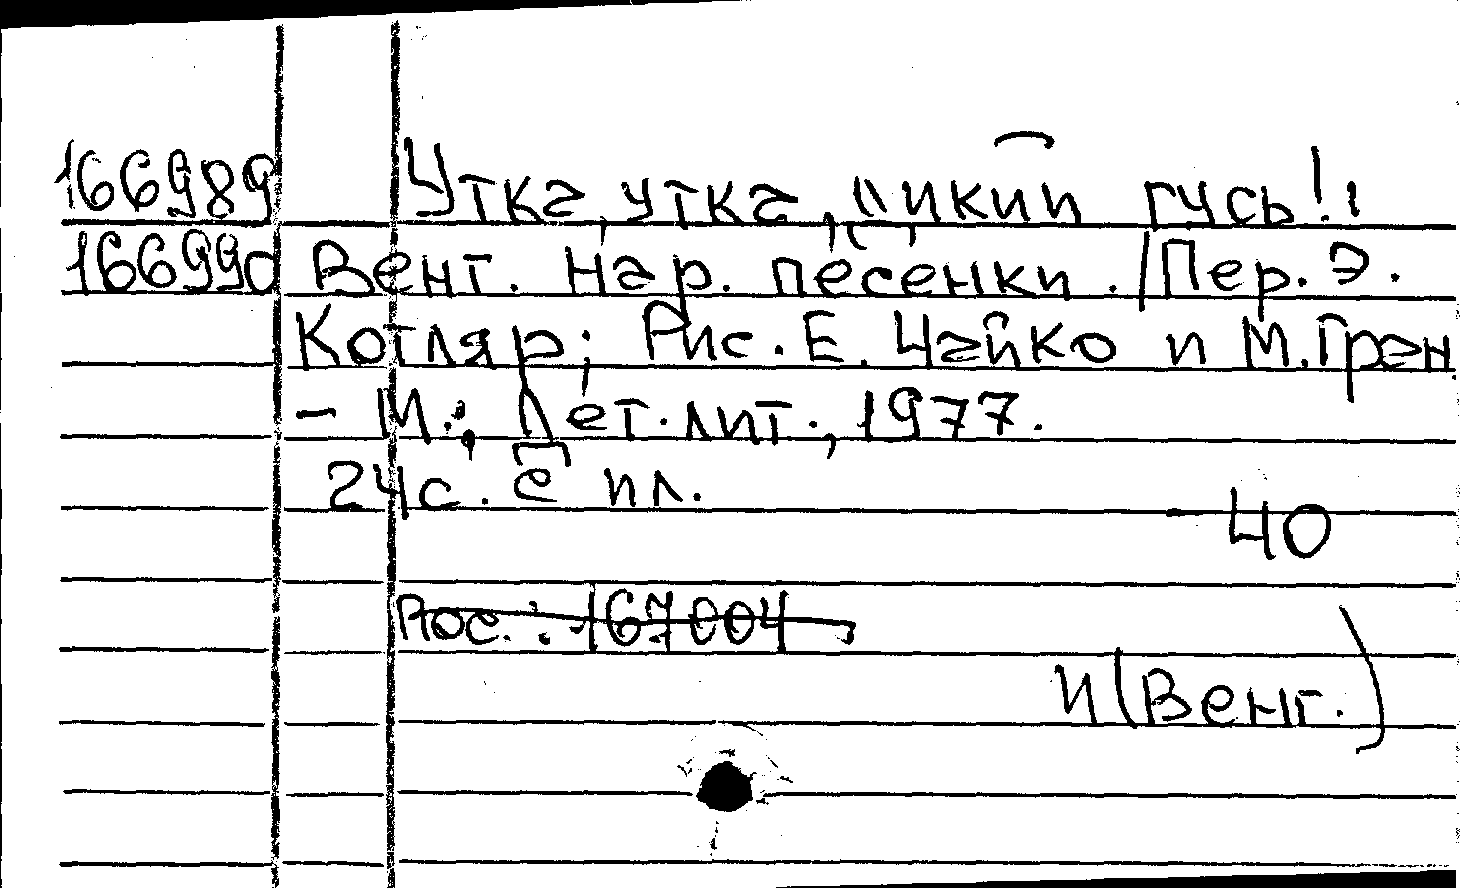 166989 Утка, утка, дикий гусь!:
166990 Венг. нар. песенки. /Пер. Э.
Котляр; Рис. Е. Чайко и М. Гран.
- М.: Дет. лит., 1977.
24с. с ил.
- 40
Рос.: 167004
И(Венг.)